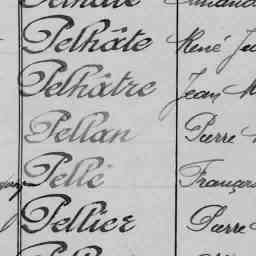 Pelhâte René
Pelhâtre Jean M
Pellan Pierre
Pellé François
Pellier Pierre